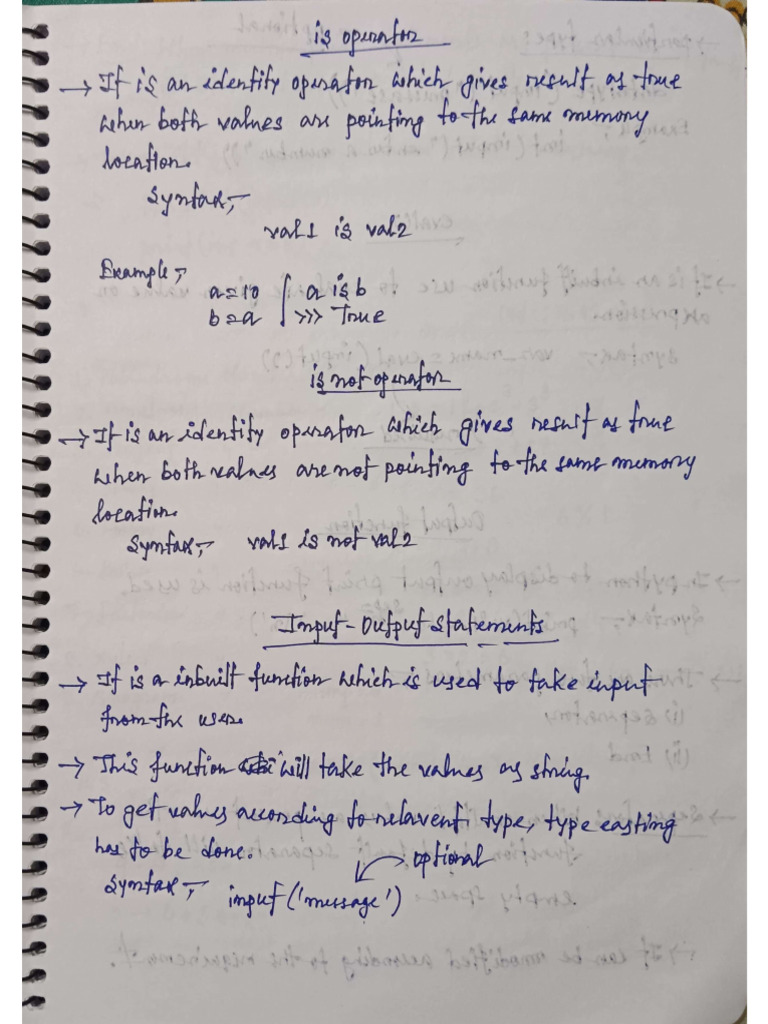 is operator
→ It is an identity operator which gives result as true
when both values are pointing to the same memory
location.
Syntax,-
val1 is val2
Example,-
a=10 | a is b
b=a | >>> True
is not operator
→ It is an identity operator which gives result as true
when both values are not pointing to the same memory
location.
Syntax,- val1 is not val2
Input-Output Statements
→ It is a inbuilt function which is used to take input
from the user.
→ This function will take the values as string.
→ To get values according to relavent type, type casting
has to be done.
→ optional
Syntax,- input('message')